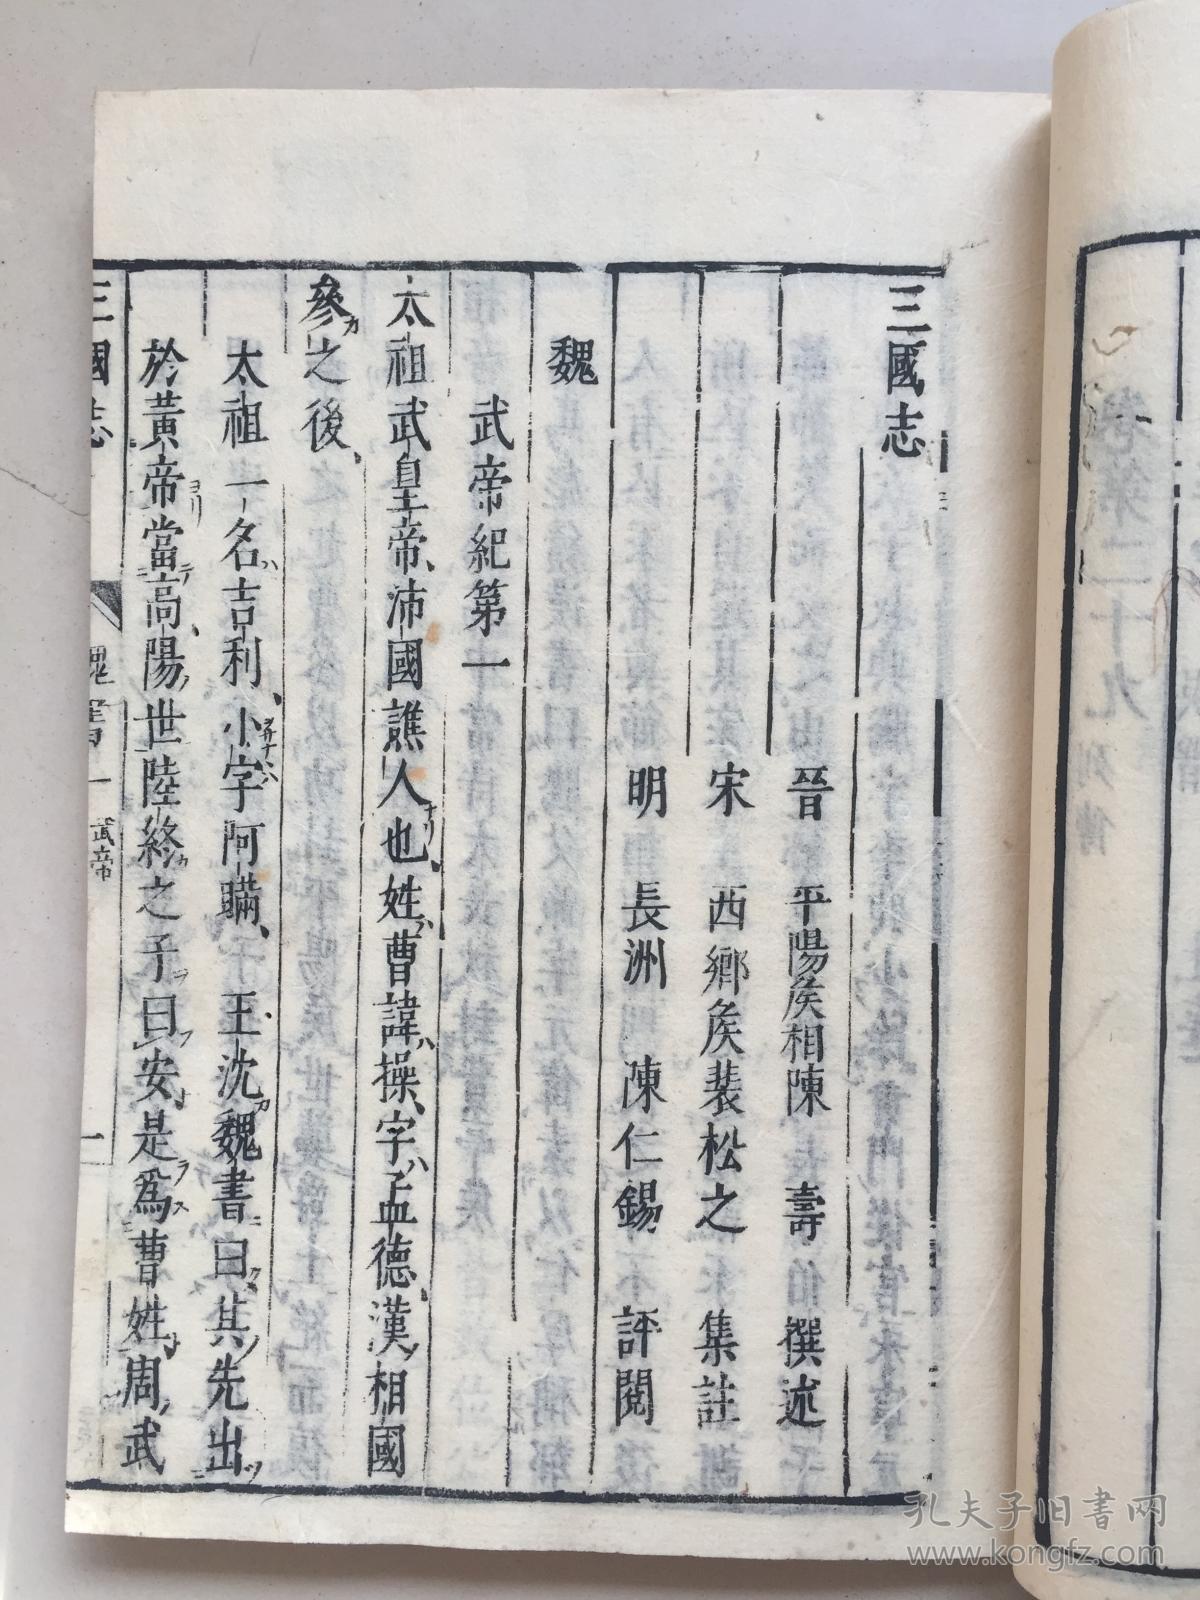 三國志
晉　平陽矦相陳　壽　撰述
宋　西鄉矦裴松之　集註
明　長洲　陳仁錫　評閱
魏
武帝紀第一
太祖武皇帝沛國譙人也姓曹諱操字孟德漢相國
參之後
太祖一名吉利小字阿瞞　王沈魏書曰其先出
於黃帝當高陽世陸終之子曰安是爲曹姓周武
三國志
魏書一
武帝
一
卷第二十九
列傳
孔夫子旧书网
www.kongfz.com